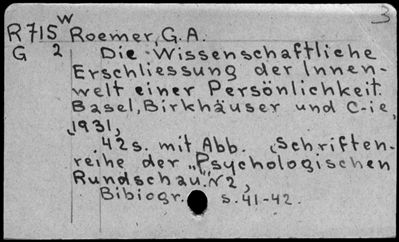 3
R715W Roemer, G. A.
G 2 Die Wissenschaftliche
Erschliessung der Innen-
welt einer Persönlichkeit
Basel, Birkhäuser und C-ie,
1931,
42s. mit Abb. (Schriften-
reihe der „Psychologischen
Rundschau" N2,
Bibiogr. s. 41-42.